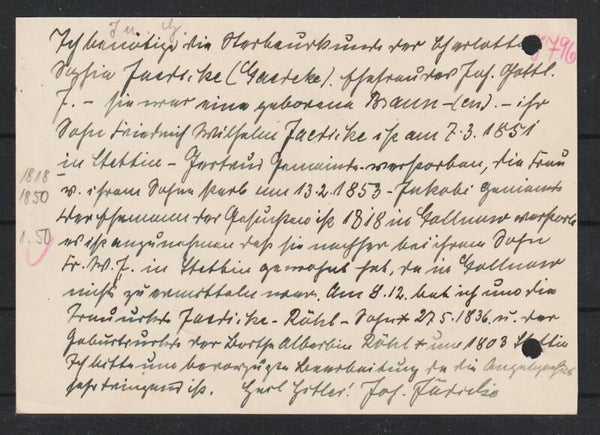 Ich benötige die Sterbeurkunde der Charlotte
796
Sophia Jaericke (Gaereke). Ehefrau des Joh. Gottl.
J. – sie war eine geborene Braun – (en). – ihr
Sohn Friedrich Wilhelm Jaericke ist am 7.3.1851
in Stettin – Gertrud Gemeinde verstorben, die Frau
v. ihrem Sohne starb am 13.2.1853 – Jakobi Gemeinde
1818
1850
Der Ehemann der Gesuchten ist 1818 in Gollnow verstorb
1.50
es ist anzunehmen daß sie nachher bei ihrem Sohn
Fr. W. J. in Stettin gewohnt hat, da in Gollnow
nichts zu ermitteln war. Am 8.12. bat ich um die
Trauurk. Jaericke – Röhl – Sohn * 27.5.1836 u. der
Geburtsurk. der Albertin Röhl * um 1803 Stettin
Ich bitte um bevorzugte Bearbeitung da die Angelegenheit
sehr dringend ist. Heil Hitler! Joh.